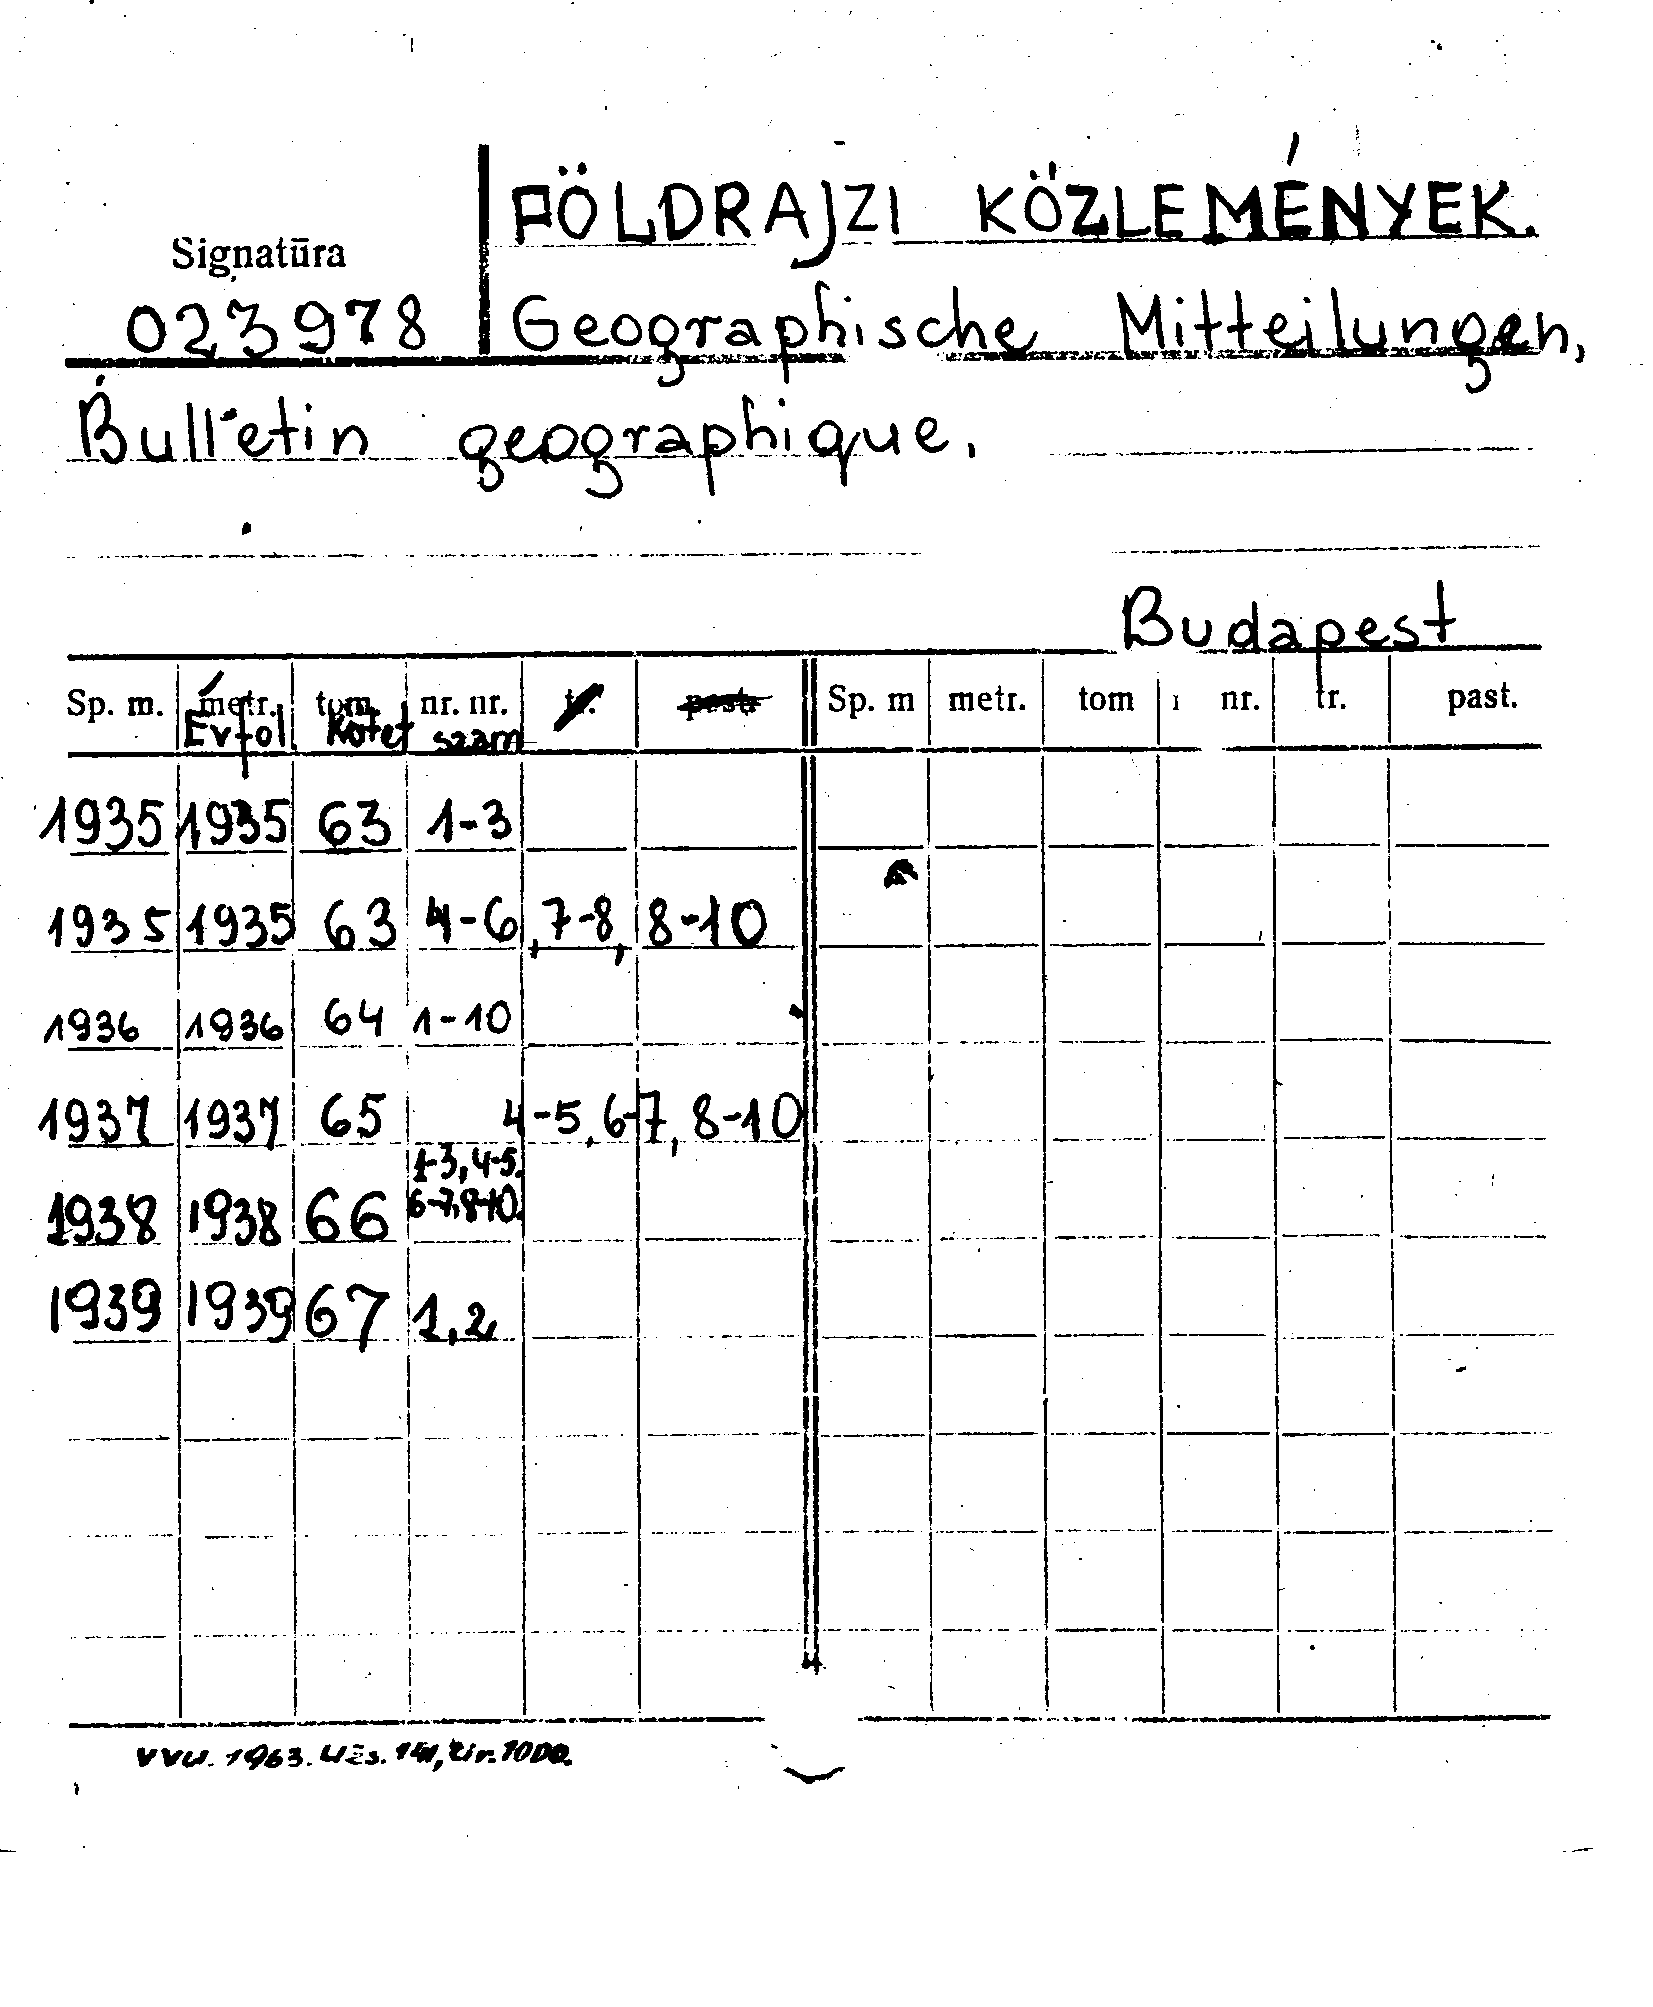 FÖLDRAJZI KÖZLEMÉNYEK.
Signatūra
023978 Geographische Mitteilungen,
Bulletin geographique.
Budapest
Sp. m. metr. tom. nr. nr. tr. past. Sp. m metr. tom nr. tr. past.
Évfol Kötet szám
1935 1935 63 1-3
1935 1935 63 4-6, 7-8, 8-10
1936 1936 64 1-10
1937 1937 65 4-5, 6-7, 8-10
1-3, 4-5.
1938 1938 66 6-7, 8-10.
1939 1939 67 1,2
VVU. 1963. Užs. tir. 1000.